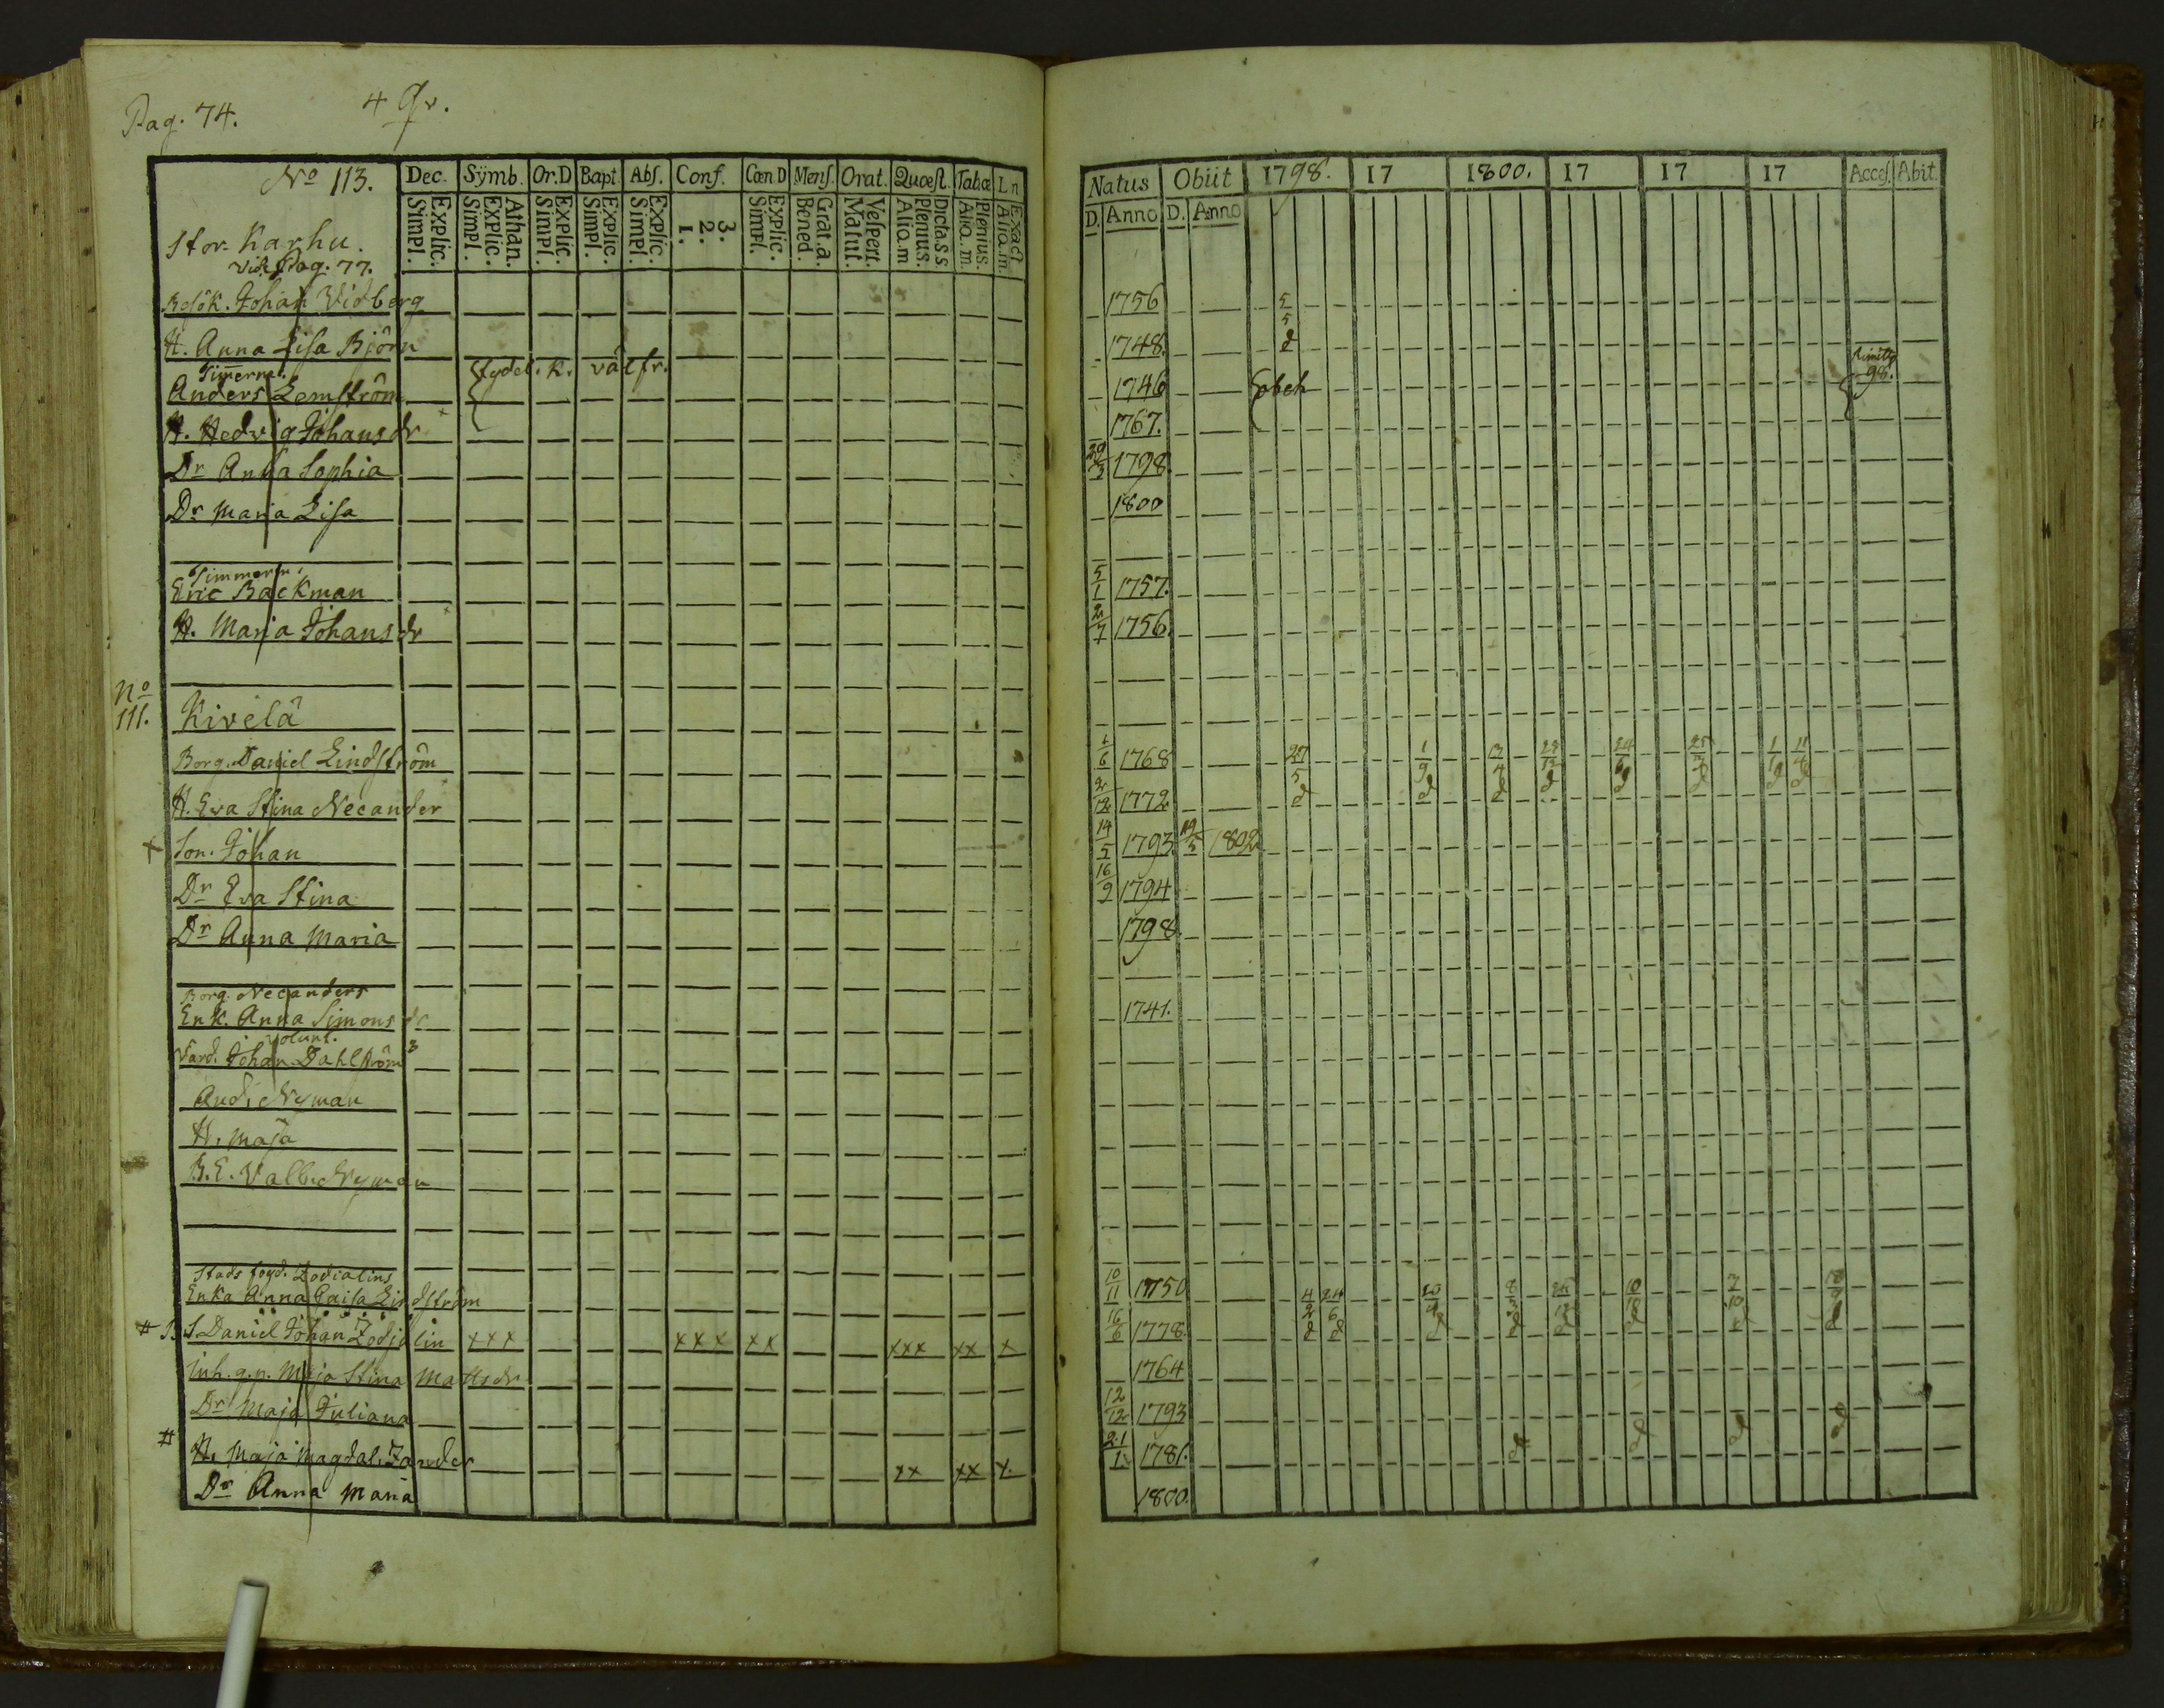 Pag. 74.
4 Qr.
No 113. Dec. Sÿmb. Or.D Bapt. Abſ. Conf. CœnD Menſ. Orat. Quœſt. Tab.œ L n
Explic. Simpl. Athan. Explic. Simpl. Explic. Simpl. Explic. Simpl. Explic. Simpl. 3. 2. 1. Explic. Simpl. Grat.a. Bened. Veſpert. Matut. Dicta.s s. Plenius. Aliq.m Plenius. Aliq.m. Exact Aliq.m.
Stor. Karhu.
Vid. Pag. 77.
Beſök. Johan Vidberg
H. Anna Liſa Björn
Timerm.
Anders Lemſtröm
H. Hedvig Johansdr
Dr Anna Sophia
Dr Maria Liſa
Timmerm.
Eric Backman
H. Maria Johansdr
No 111. Kivelä
Borg. Daniel Lindſtröm
H. Eva Stina Necander
Son. Johan
Dr Eva Stina
Dr Anna Maria
Borg. Necanders
Enk. Anna Simonsdr
Volunt.
Vard. Johan Dahlſtröm 3
And. Nyman
H. Maja
B.E. Valb. Nyman
Stads fogd. Zodialins
Enka Anna Caiſa Lindſtröm
S Daniel Johan Zodjalin xxx xxx xx xxx xx x
Inh. q.p. Maja Stina Mattsdr
Dr Maja Juliana
H. Maja Magdal. Zander xx xx x
Dr Anna Maria
Natus Obiit 1798. 17 1800. 17 17 17 Acceſ. Abit.
D. Anno D. Anno
1756 5/5
1748. d
1746
98.
1767.
1798
1800
5/1 1757.
2/7 1756.
1/6 1768 27/5 1/9
2/12 1772 d d d d d d d d
14/5 1793 1802
16/9 1794
1798.
1741.
10/11 1750 4/2 24/6
16/6 1778. d d d d d d
1764
12/12 1793
21/1 1781.
1800.